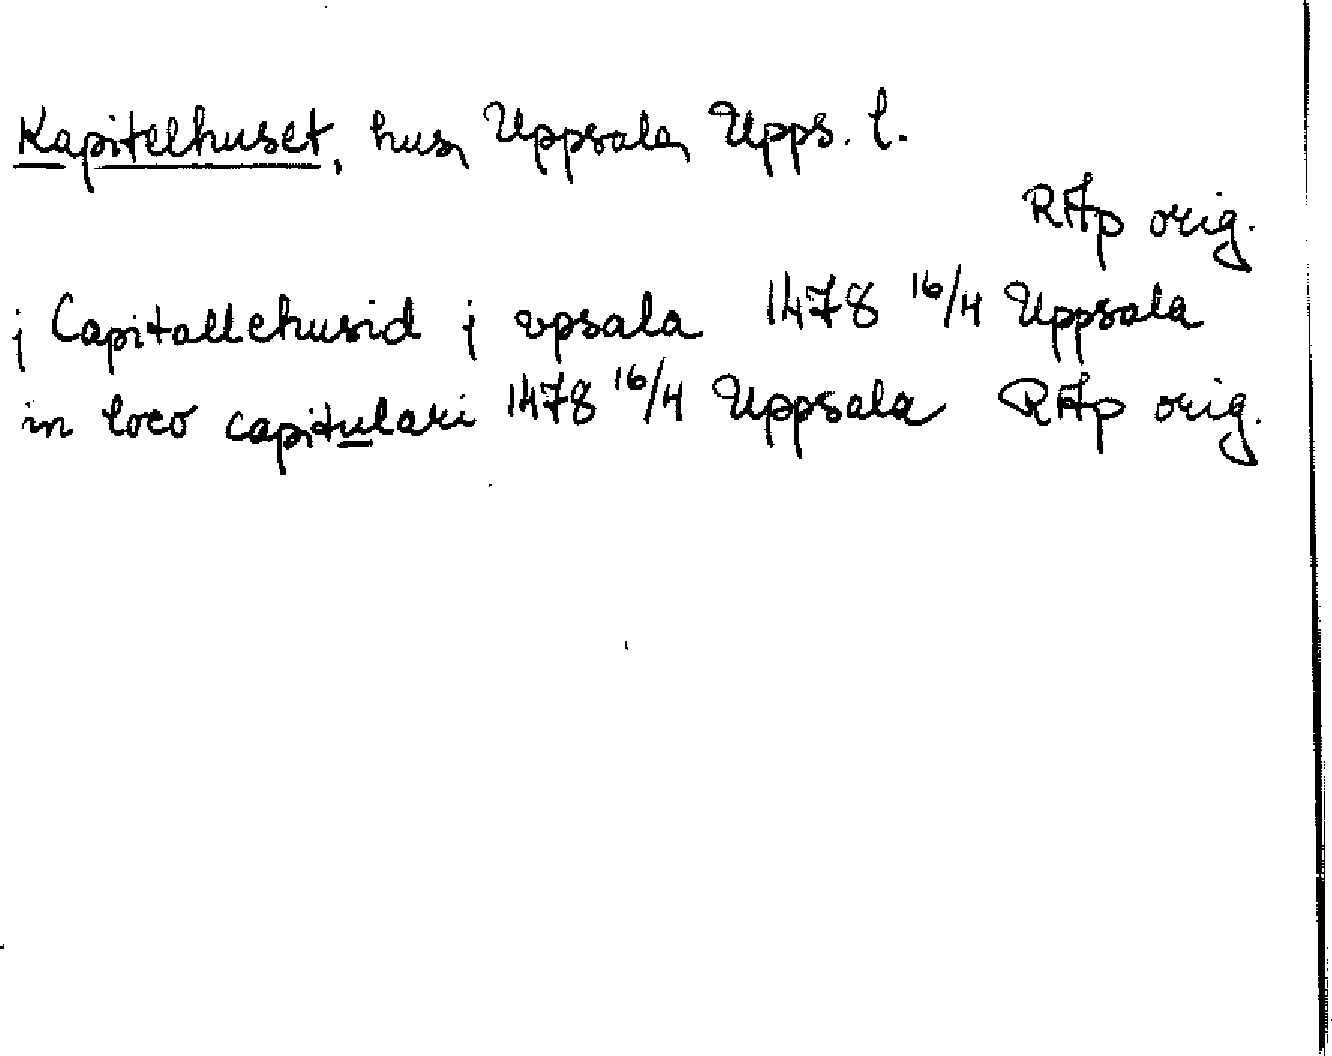 Kapitelhuset, hus, Uppsala, Upps. l.
RAp orig.
j Capitallehusid j vpsala 1478 16/4 Uppsala
in loco capitulari 1478 16/4 Uppsala RAp orig.